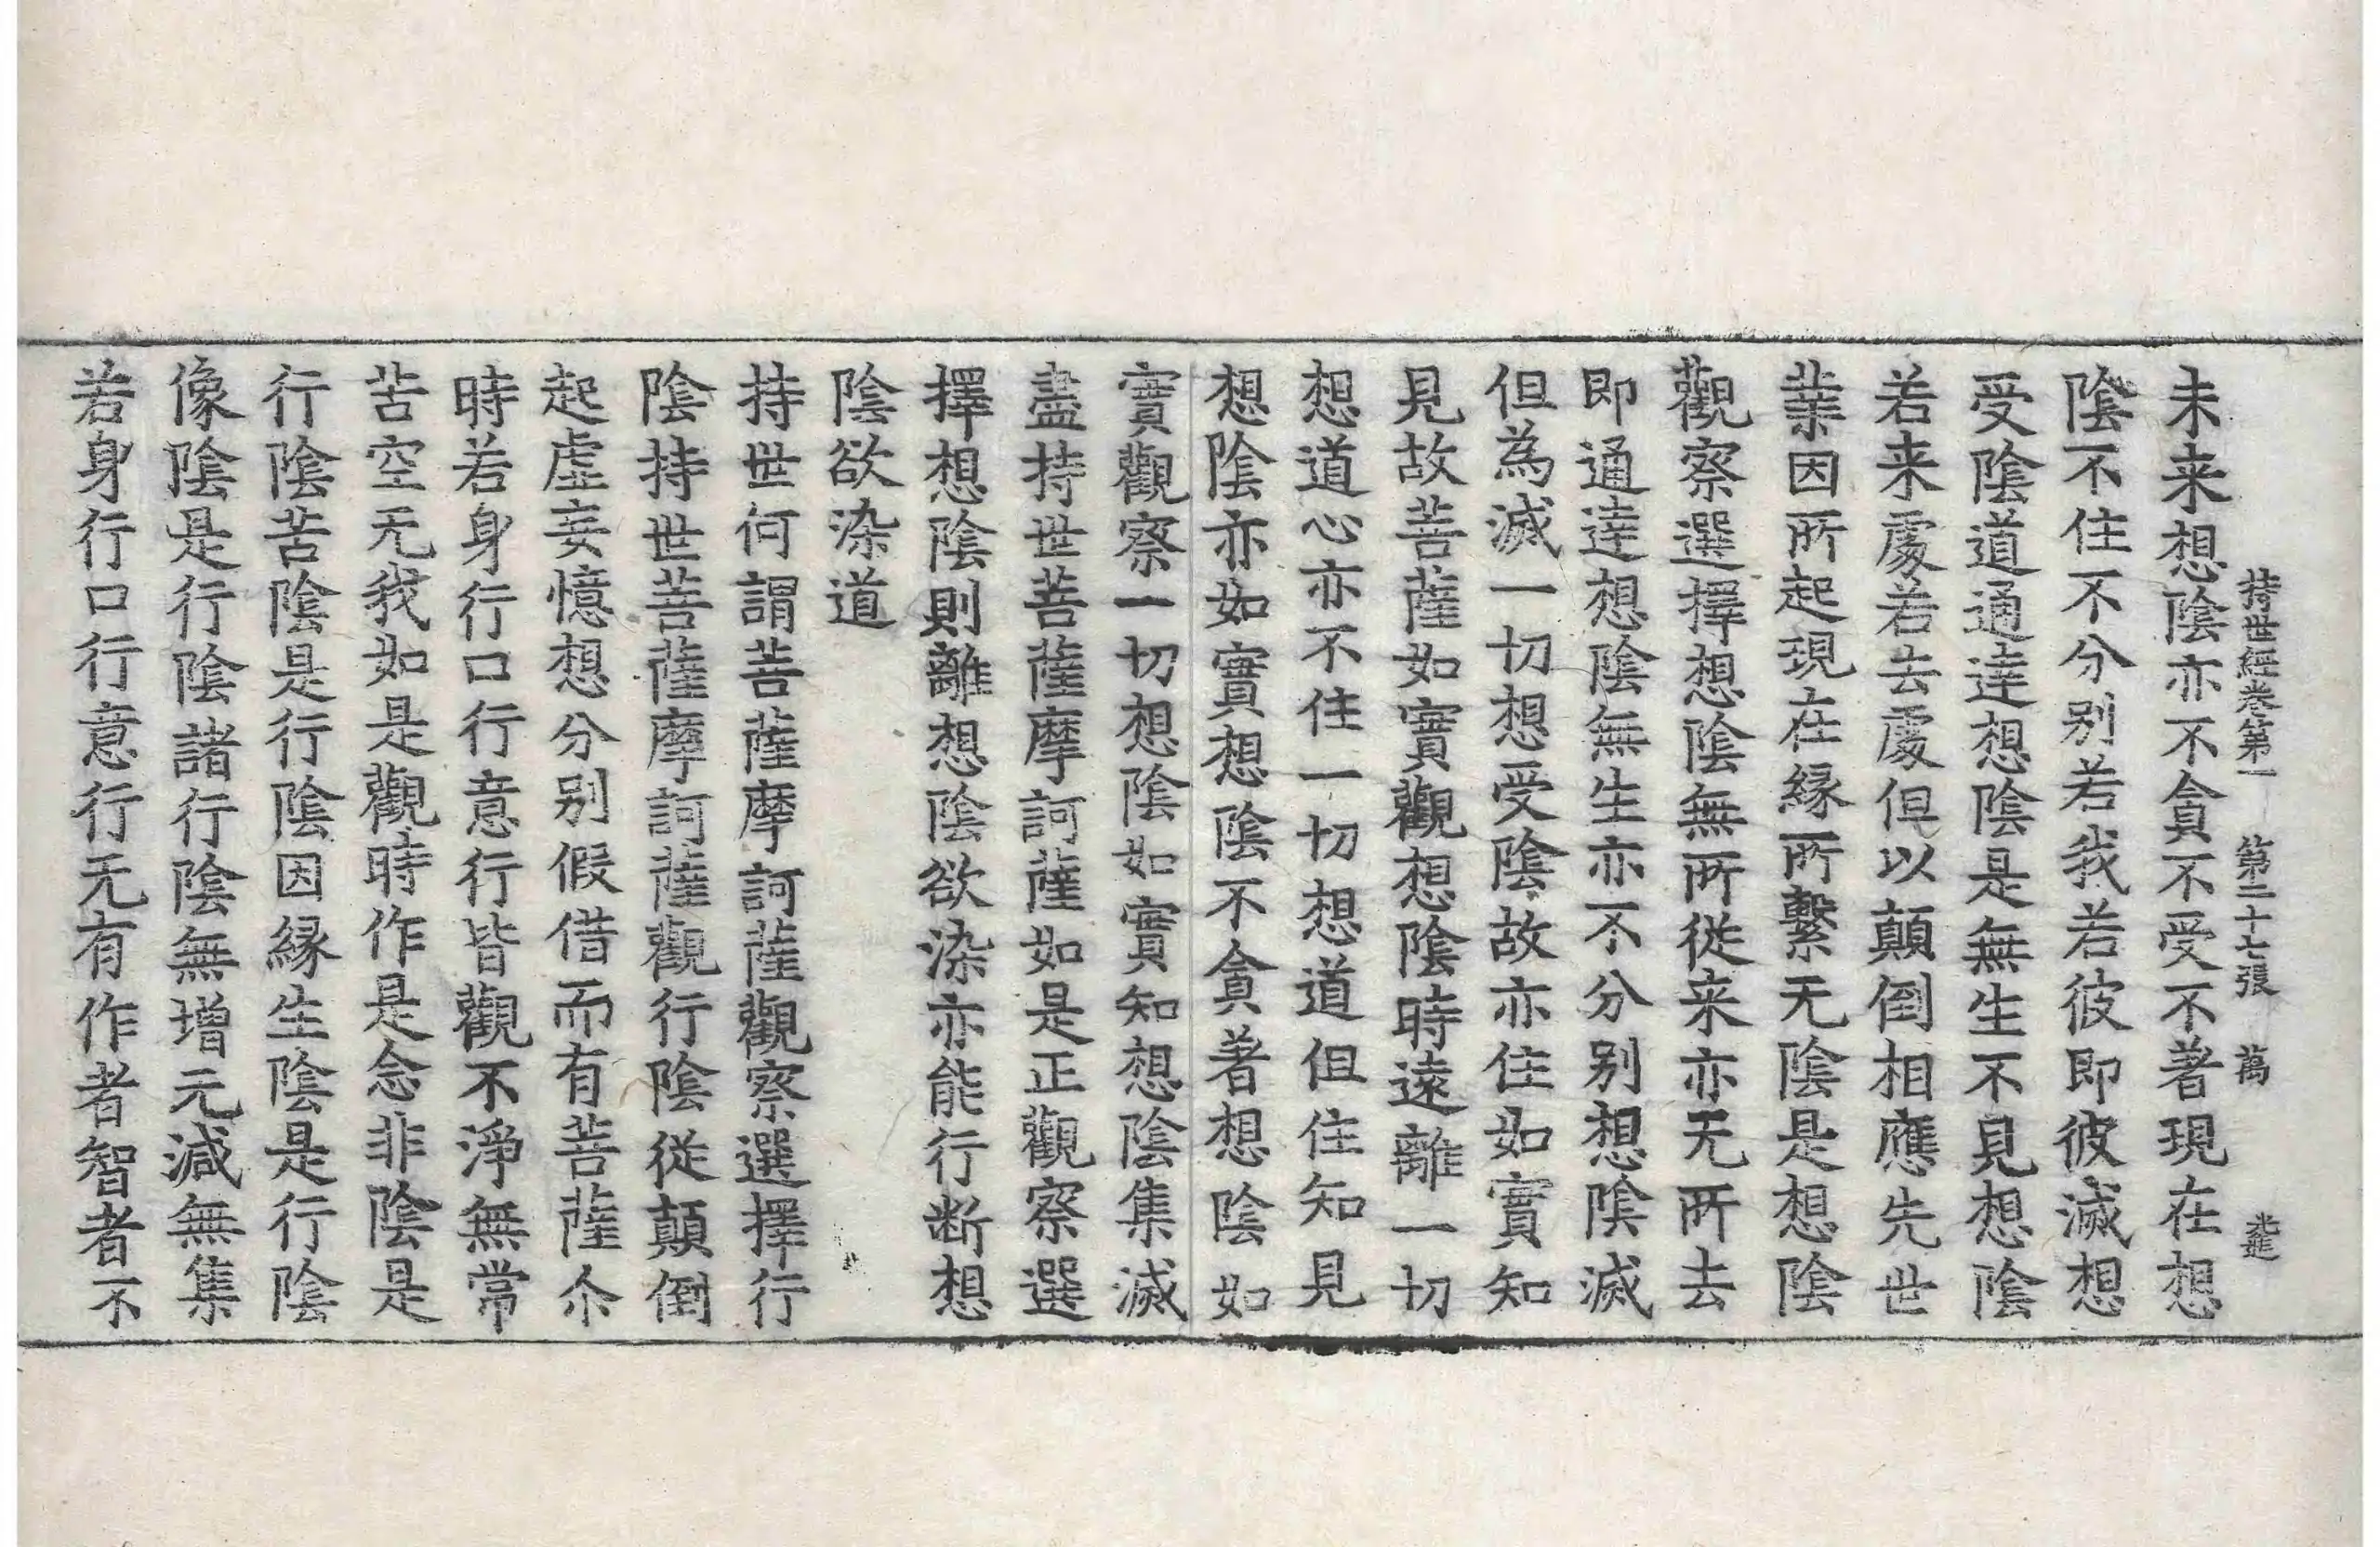 持世經卷第一 第二十七張 萬
未来想陰亦不貪不受不著現在想
陰不住不分别若我若彼即彼滅想
受陰道通達想陰是無生不見想陰
若来處若去處但以顛倒相應先世
業因所起現在緣所繫无陰是想陰
觀察選擇想陰無所從来亦无所去
即通達想陰無生亦不分别想陰滅
但為滅一切想受陰故亦住如實知
見故菩薩如實觀想陰時遠離一切
想道心亦不住一切想道但住知見
想陰亦如實想陰不貪著想陰如
實觀察一切想陰如實知想陰集滅
盡持世菩薩摩訶薩如是正觀察選
擇想陰則離想陰欲染亦能行断想
陰欲染道
持世何謂菩薩摩訶薩觀察選擇行
陰持世菩薩摩訶薩觀行陰從顛倒
起虛妄憶想分别假借而有菩薩尒
時若身行口行意行皆觀不淨無常
苦空无我如是觀時作是念非陰是
行陰苦陰是行陰因緣生陰是行陰
像陰是行陰諸行陰無增无減無集
若身行口行意行无有作者智者不